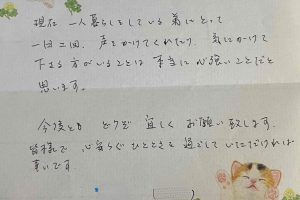 現在 一人暮らしをしている者にとって
一日一回、声をかけてくれたり、気にかけて
下さる方がいることは 本当に心強いことだと
思います。
今後とも どうぞ 宜しく お願い致します。
皆様で 心安らぐひとときを過ごしていただければ
幸いです。